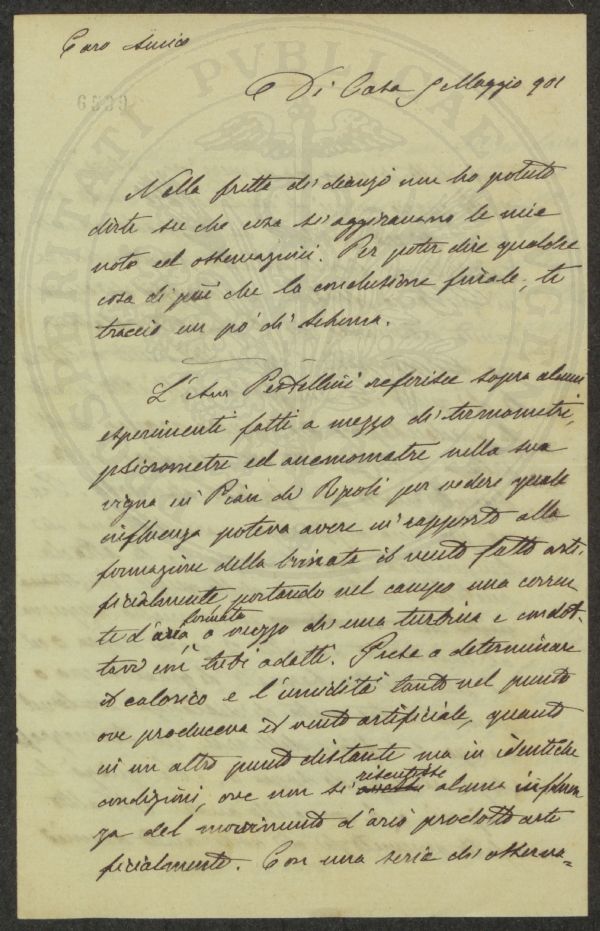 Caro Amico
6599
Di Casa 9 Maggio 901
Nella fretta di dianzi non ho potuto
dirti su che cosa si aggiravano le mie
note ed osservazioni. Per poter dire qualche
cosa di più che la conclusione finale, ti
traccio un po' di schema.
L'Avv Pestellini referisce sopra alcuni
esperimenti fatti a mezzo di termometri,
psicrometri ed anemometri nella sua
vigna in Pian di Ripoli per vedere quale
influenza poteva avere in rapporto alla
formazione della brinata il vento fatto arti-
ficialmente portando nel campo una corren
te d'aria formata a mezzo di una turbina e condot-
tavi con tubi adatti. Prese a determinare
il calorico e l'umidità tanto nel punto
ove produceva il vento artificiale, quanto
in un altro punto distante ma in identiche
condizioni, ove non si risentisse alcuna influen
za del movimento d'aria prodotto arti
ficialmente. Con una serie di osserva=
PROSPERITATI PVBLICAE